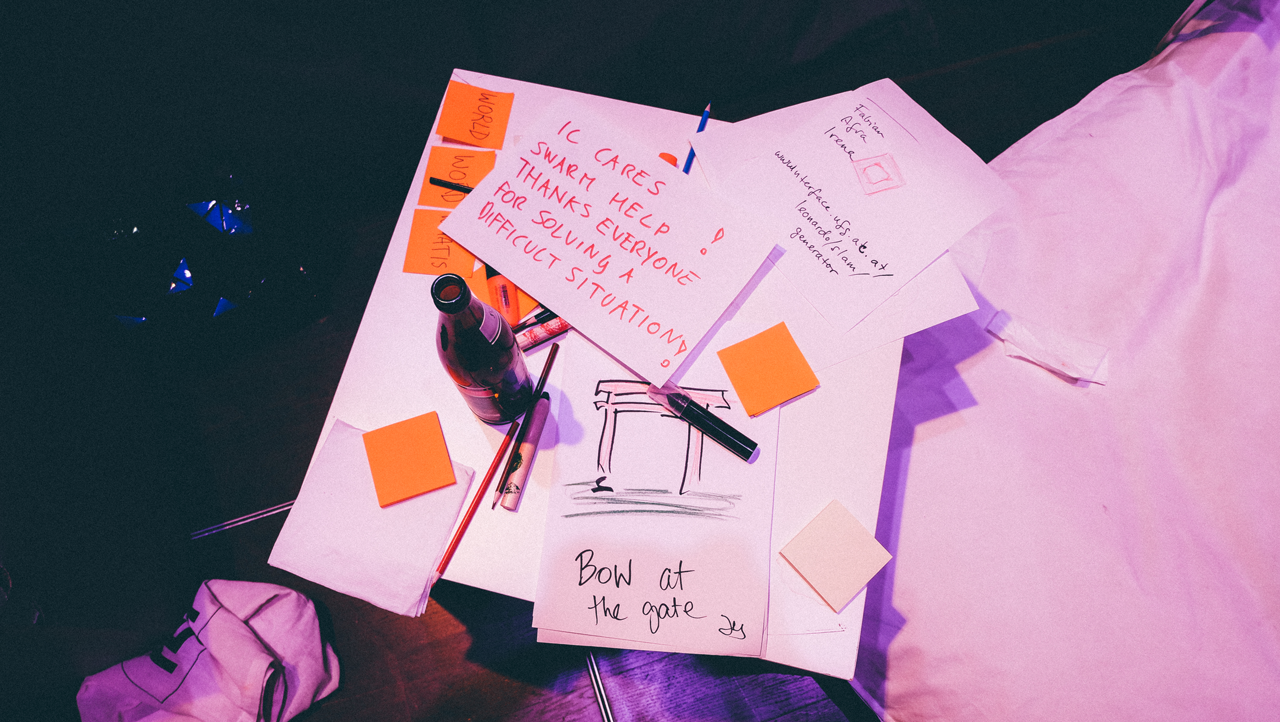 WORLD
WOLD
IC CARES
SWARM HELP!
THANKS EVERYONE
FOR SOLVING A
DIFFICULT SITUATION!
Fabian
Agra
Irena
leonardo/slam/
generator
Bow at
the gate